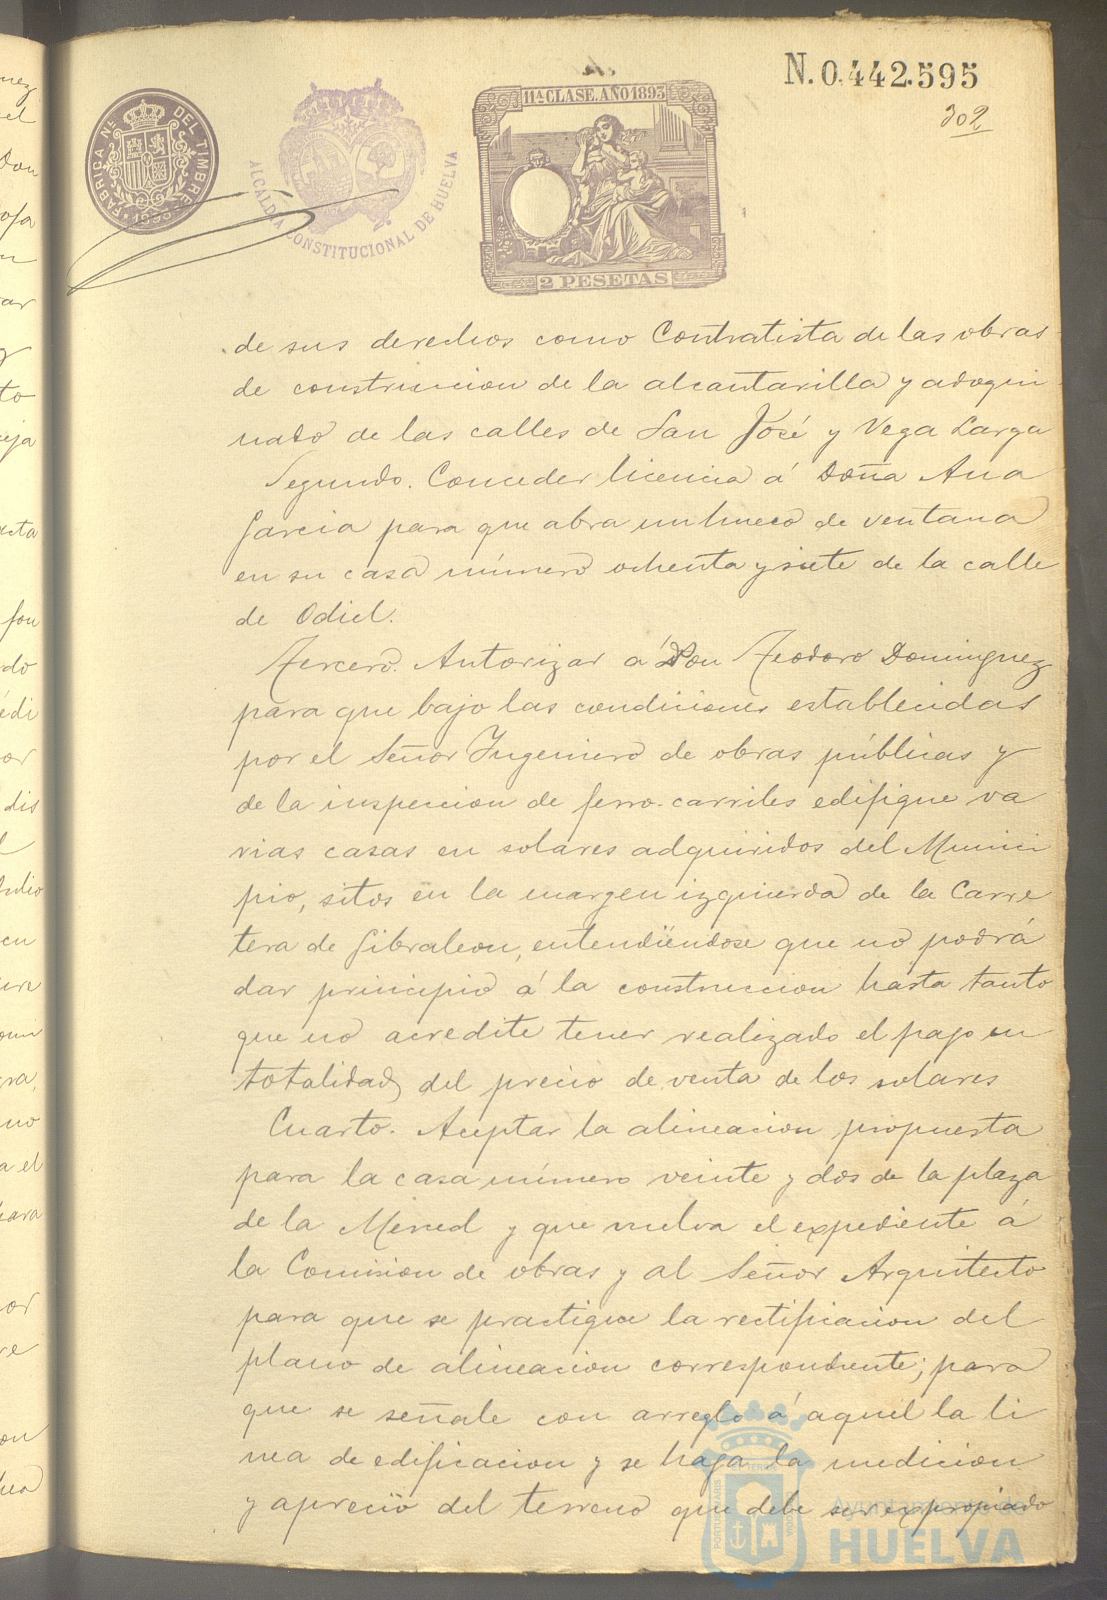 N. 0.442.595
302
FABRICA Nal. DEL TIMBRE
ALCALDIA CONSTITUCIONAL DE HUELVA
11ª CLASE. AÑO 1893
2 PESETAS
de sus derechos como Contratista de las obras
de construccion de la alcantarilla y adoqui
nado de las calles de San José y Vega Larga
Segundo. Conceder licencia á Doña Ana
Garcia para que abra un hueco de ventana
en su casa número ochenta y siete de la calle
de Odiel.
Tercero. Autorizar á Don Teodoro Dominguez
para que bajo las condiciones establecidas
por el Señor Ingeniero de obras públicas y
de la inspeccion de ferro-carriles edifique va
rias casas en solares adquiridos del Munici
pio, sitos en la margen izquierda de la Carre
tera de Gibraleon, entendiéndose que no podrá
dar principio á la construccion hasta tanto
que no acredite tener realizado el pago en
totalidad del precio de venta de los solares
Cuarto. Aceptar la alineacion propuesta
para la casa número veinte y dos de la plaza
de la Merced y que vuelva el expediente á
la Comision de obras y al Señor Arquitecto
para que se practique la rectificacion del
plano de alineacion correspondiente; para
que se señale con arreglo á aquel la li
nea de edificacion y se haga la medicion
y aprecio del terreno que debe ser expropiado
Ayuntamiento de
HUELVA